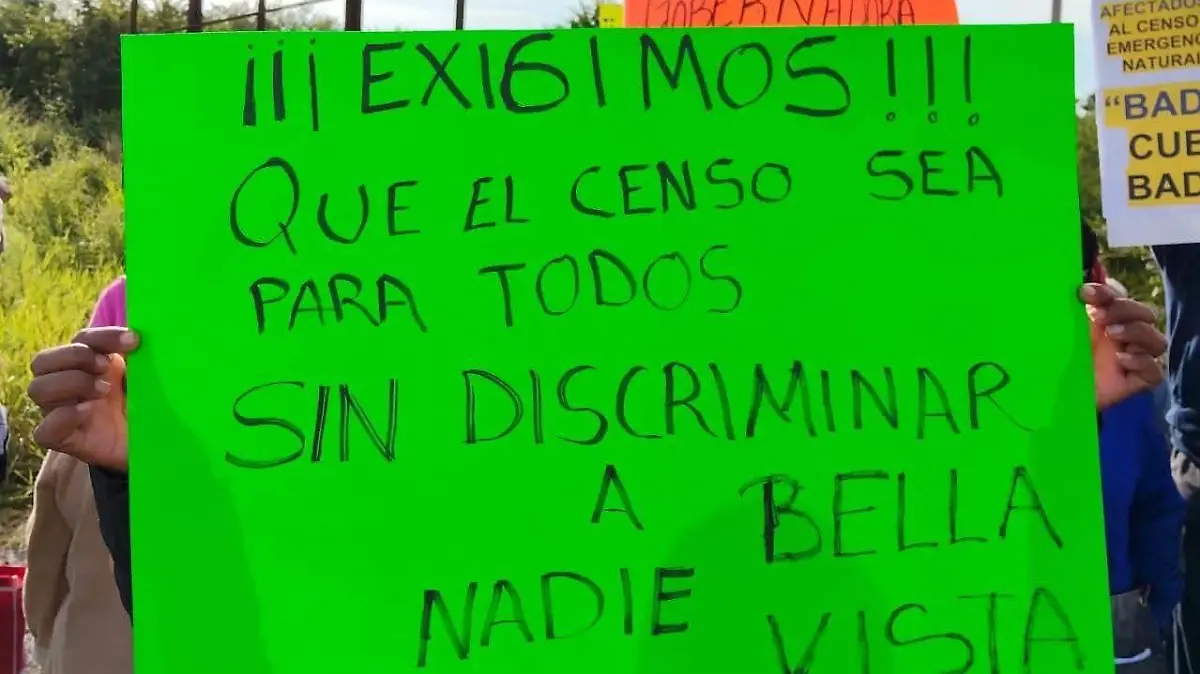 GOBERNADORA
¡¡¡EXIGIMOS!!!
QUE EL CENSO SEA
PARA TODOS
SIN DISCRIMINAR
A
NADIE
BELLA
VISTA
AFECTADOS
AL CENSO
EMERGENC
NATURAL
"BAD
CUE
BAD